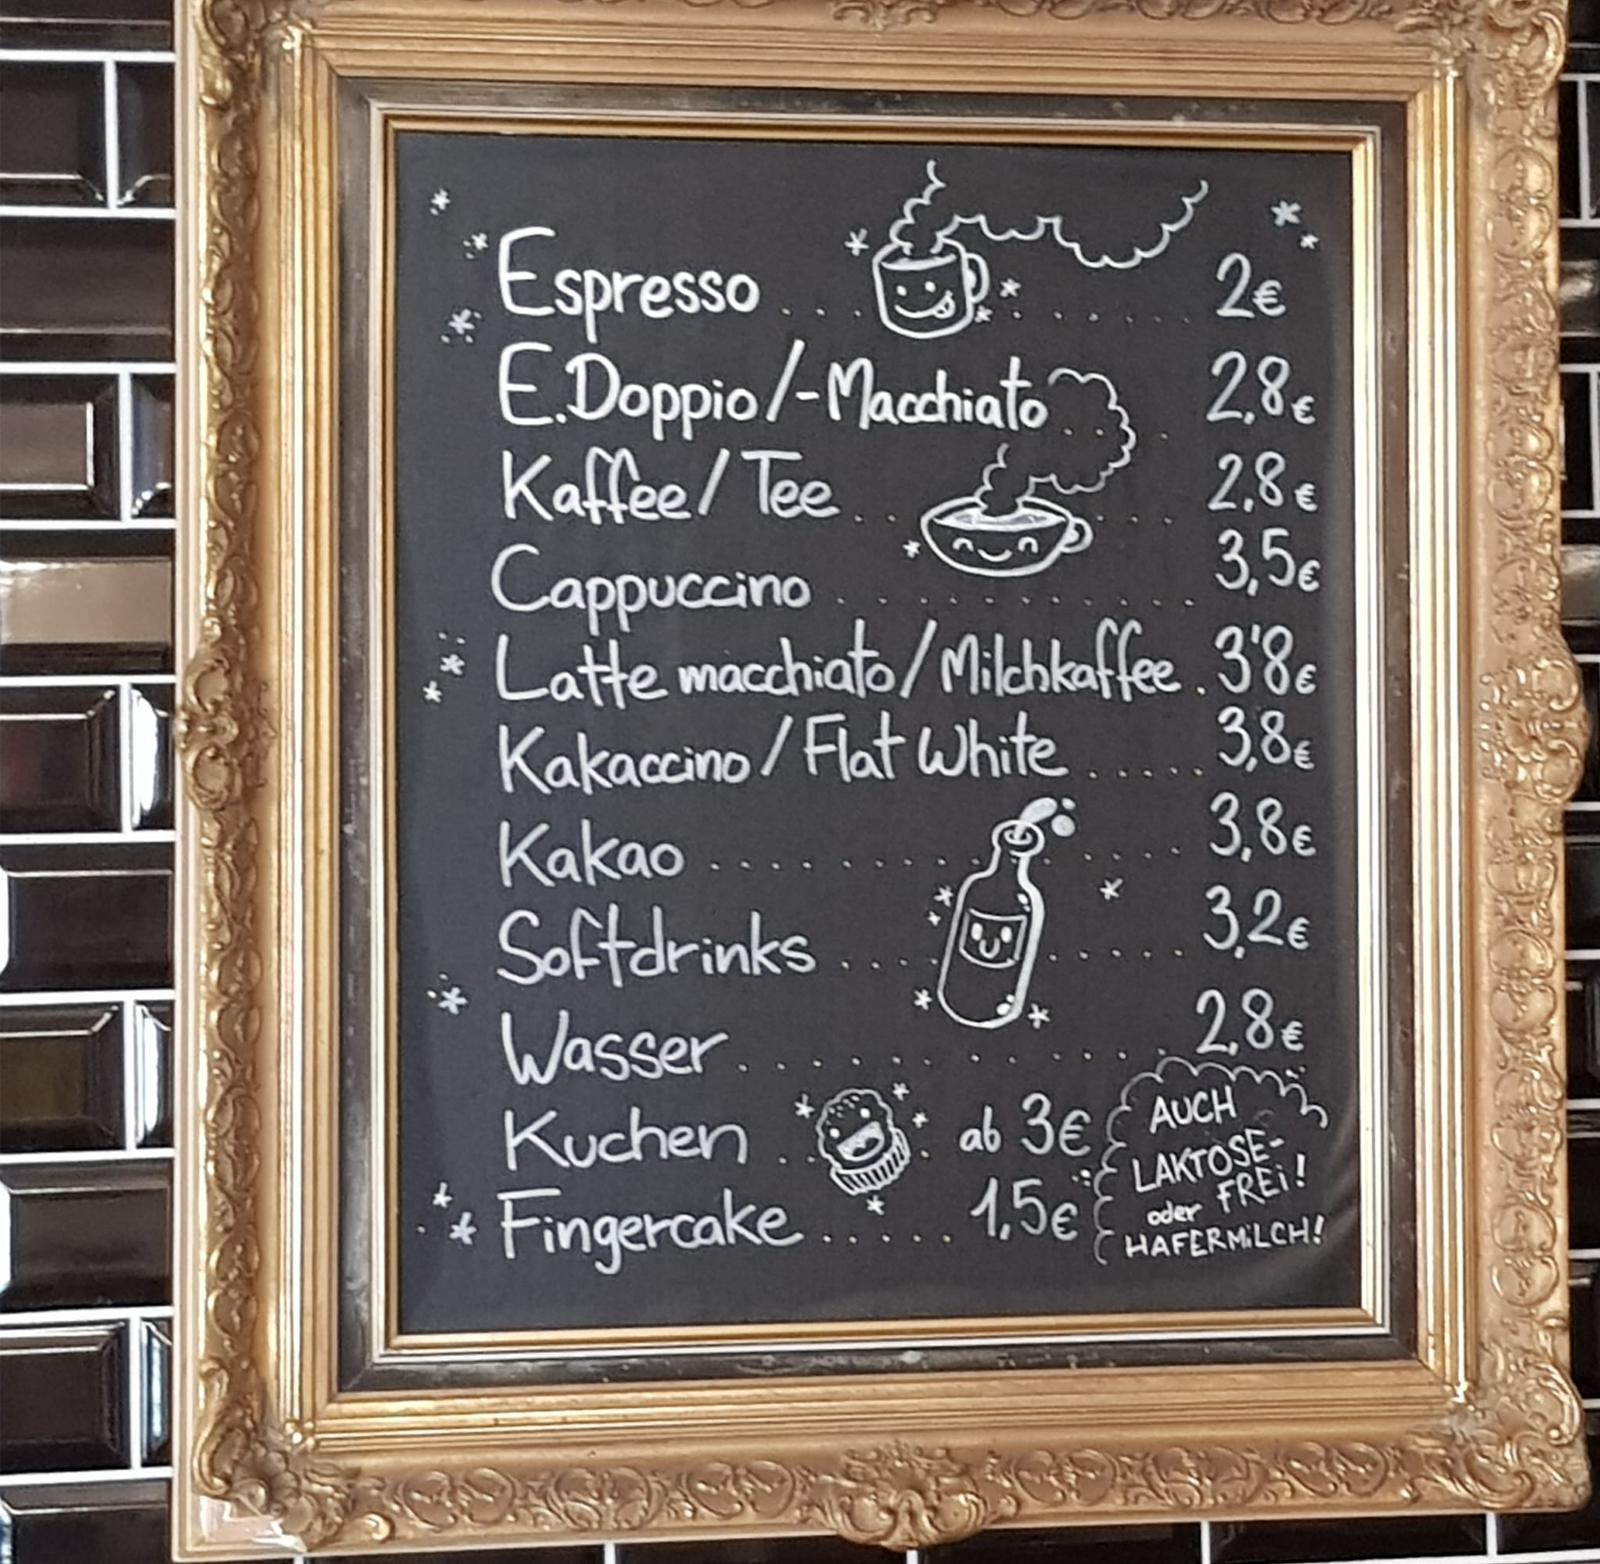 Espresso . . . . . . . . . 2€
E.Doppio/-Macchiato . . . 2,8€
Kaffee/Tee . . . . . . 2,8€
Cappuccino . . . . . . . . . . 3,5€
Latte macchiato/Milchkaffee . 3'8€
Kakaccino/Flat White . . . . . 3,8€
Kakao . . . . . . . . . . . . 3,8€
Softdrinks . . . . . . . . . 3,2€
Wasser . . . . . . . . . . . 2,8€
Kuchen . . . ab 3€
Fingercake . . . . . 1,5€
AUCH
LAKTOSE-
FREi!
oder
HAFERMiLCH!